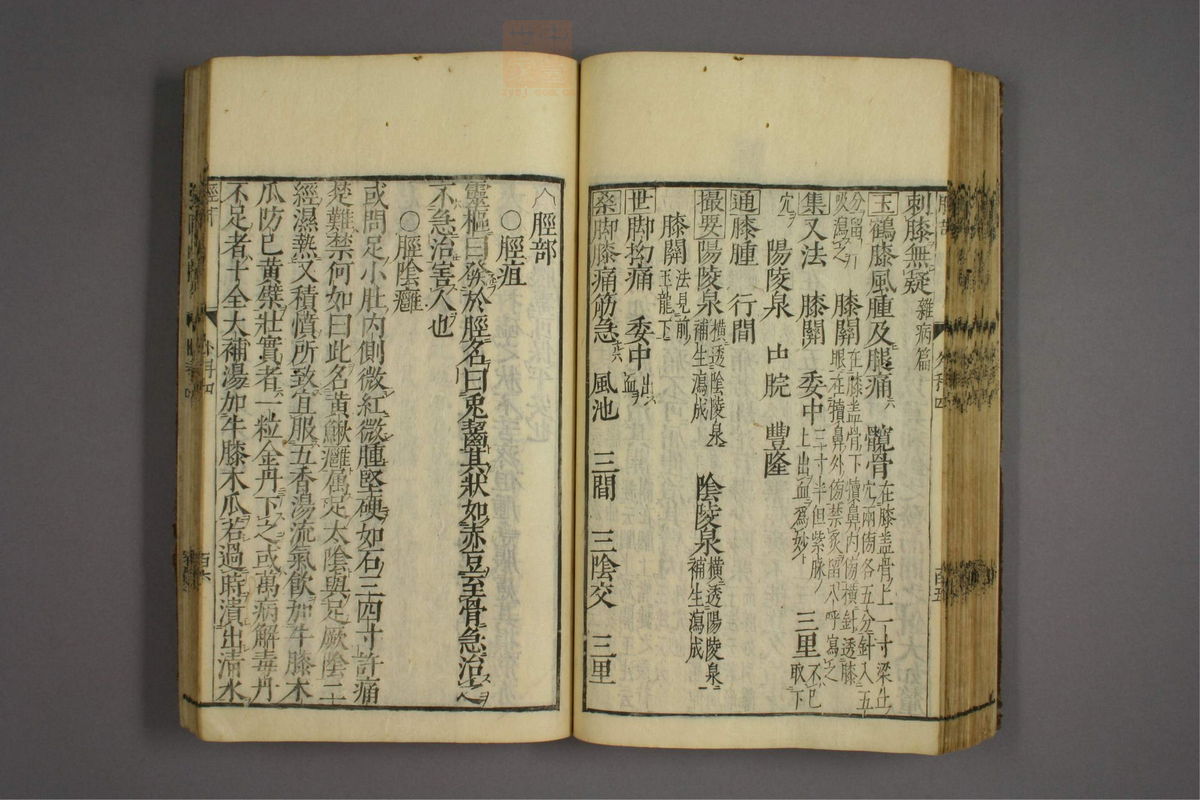 刺膝無疑雜病篇
玉鶴膝風腫及腿痛 髖骨在膝蓋骨上一寸梁丘
穴兩傍各五分針入五
分留
吸瀉之 膝關在膝蓋骨下犢鼻內傍橫針透膝
眼在犢鼻外傍禁灸留八呼寫之
集又法 膝關 委中三寸半但紫脉
上出血為妙 三里不已
取下
穴 陽陵泉 中脘 豐隆
通膝腫 行間
撮要陽陵泉橫透陰陵泉
補生瀉成 陰陵泉橫透陽陵泉
補生瀉成
膝關法見前
玉龍下
世脚拘痛 委中出血
桑脚膝痛筋急 風池 三間 三陰交 三里
脛部
○脛疽
靈樞曰發於脛名曰兎齧其狀如赤豆至骨急治之
不急治害人也
○脛陰癰
或問足小肚內側微紅微腫堅硬如石三四寸許痛
楚難禁何如曰此名黃鰍癰屬足太陰與足厥陰二
經濕熱又積憤所致宜服五香湯流氣飲加牛膝木
瓜防已黃蘗壯實者一粒金丹下之或萬病解毒丹
不足者十全大補湯加牛膝木瓜若過時潰出清水
外科四
百六